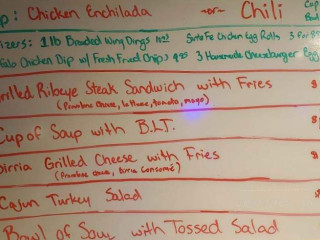 p: Chicken Enchilada -or- Chili Cup
izers: 1 lb Breaded Wing Dings Santa Fe Chicken Egg Rolls 3 for
falo Chicken Dip w/ Fresh Fried Chips 3 Homemade Cheeseburger Egg
rilled Ribeye Steak Sandwich with Fries
(Provolone cheese, lettuce, tomato, mayo)
Cup of Soup with B.L.T.
Birria Grilled Cheese with Fries
(Provolone cheese, birria consomé)
Cajun Turkey Salad
Bowl of Soup with Tossed Salad